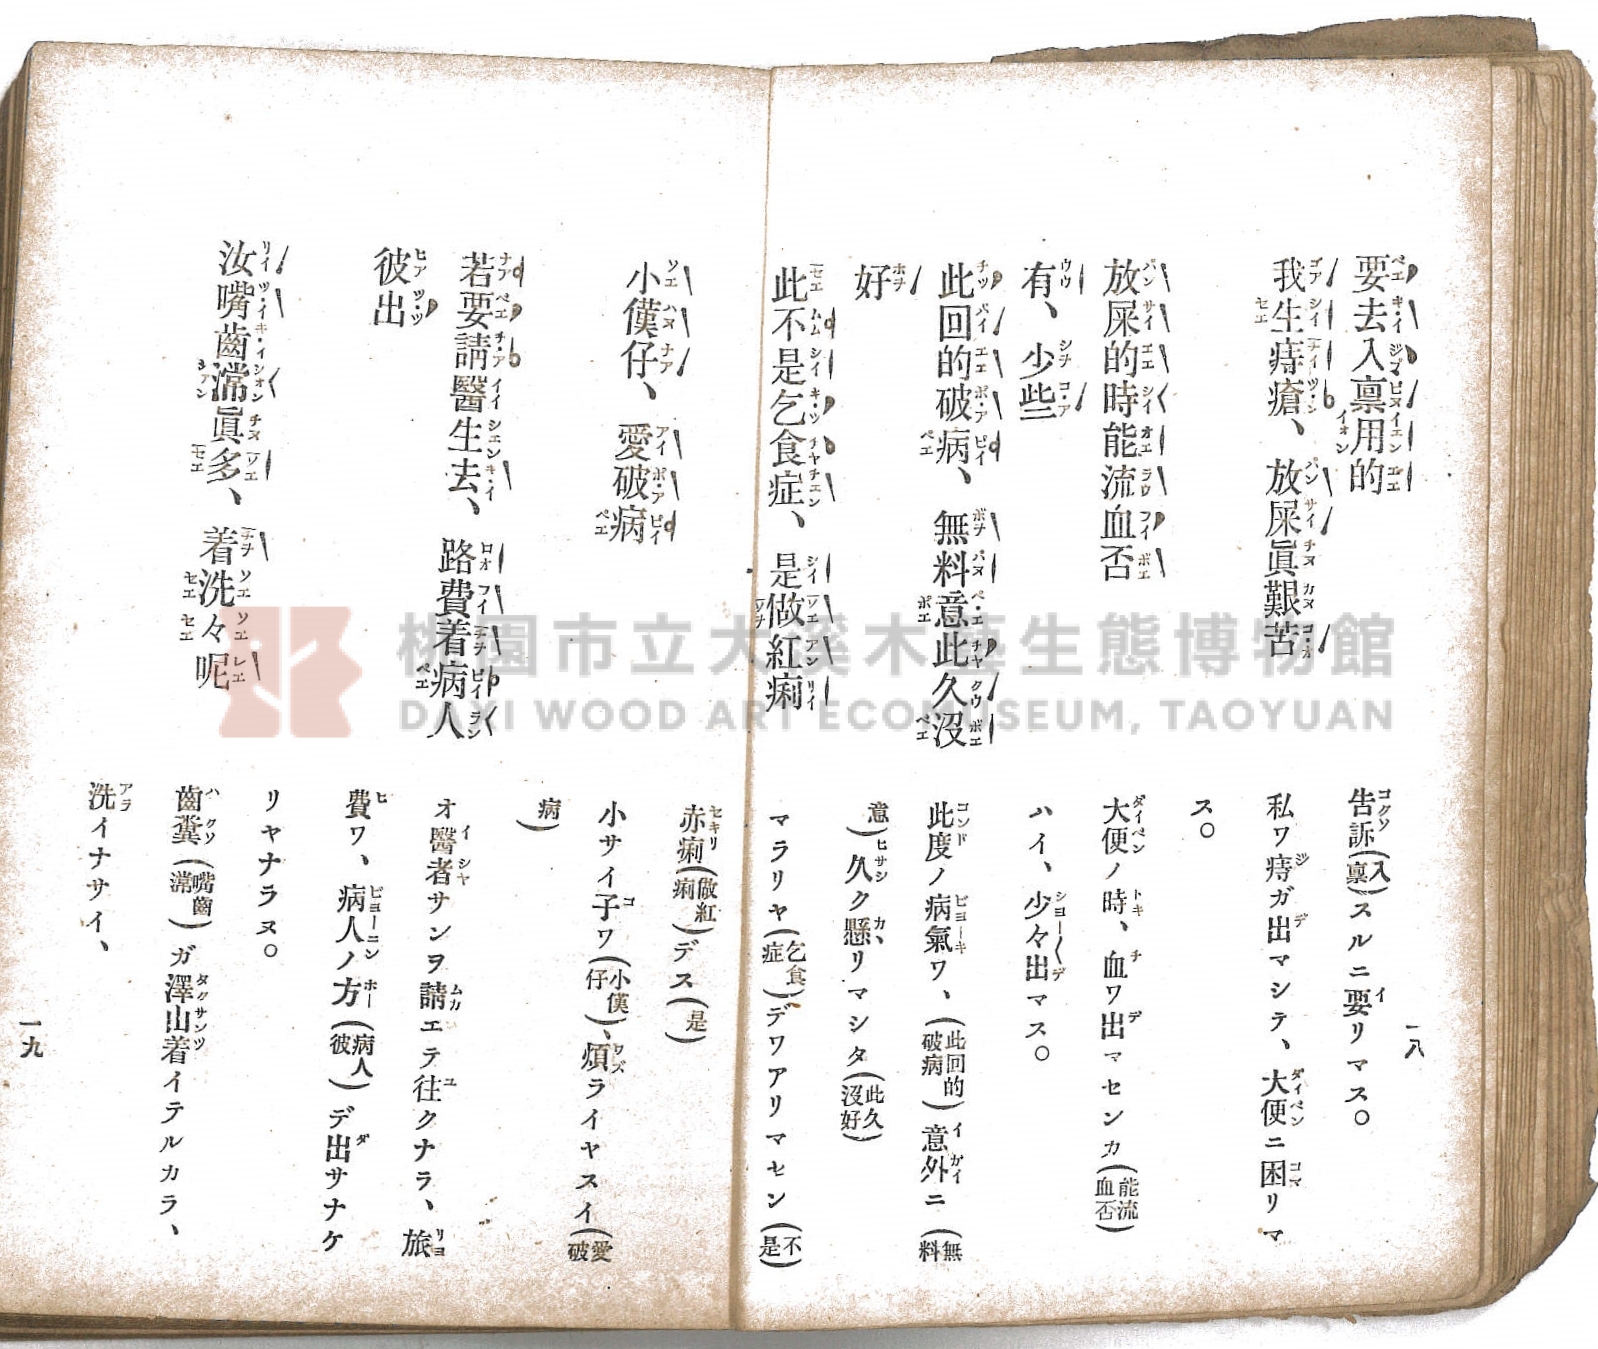 要去入禀用的
我生痔瘡、放屎眞艱苦
放屎的時能流血否
有、少些
此回的破病、無料意此久沒
好
此不是乞食症、是做紅痢
告訴(入禀)スルニ要リマス。
私ワ痔ガ出マシテ、大便ニ困リマ
ス。
大便ノ時、血ワ出マセンカ(能流血否)
ハイ、少々出マス。
此度ノ病氣ワ、(此回的破病)意外ニ(無料
意)久ク懸リマシタ(此久沒好)
マラリヤ(乞食症)デワアリマセン(不是)
一八
小僕仔、愛破病
若要請醫生去、路費着病人
彼出
汝嘴齒滯眞多、着洗々呢
赤痢(做紅痢)デス(是)
小サイ子ワ(小僕仔)、煩ライヤスイ(愛破
病)
オ醫者サンヲ請エテ往クナラ、旅
費ワ、病人ノ方(病人彼)デ出サナケ
リヤナラヌ。
齒糞(嘴齒滯)ガ澤山着イテルカラ、
洗イナサイ、
一九
桃園市立大溪木藝生態博物館
DAXI WOOD ART ECOMUSEUM, TAOYUAN